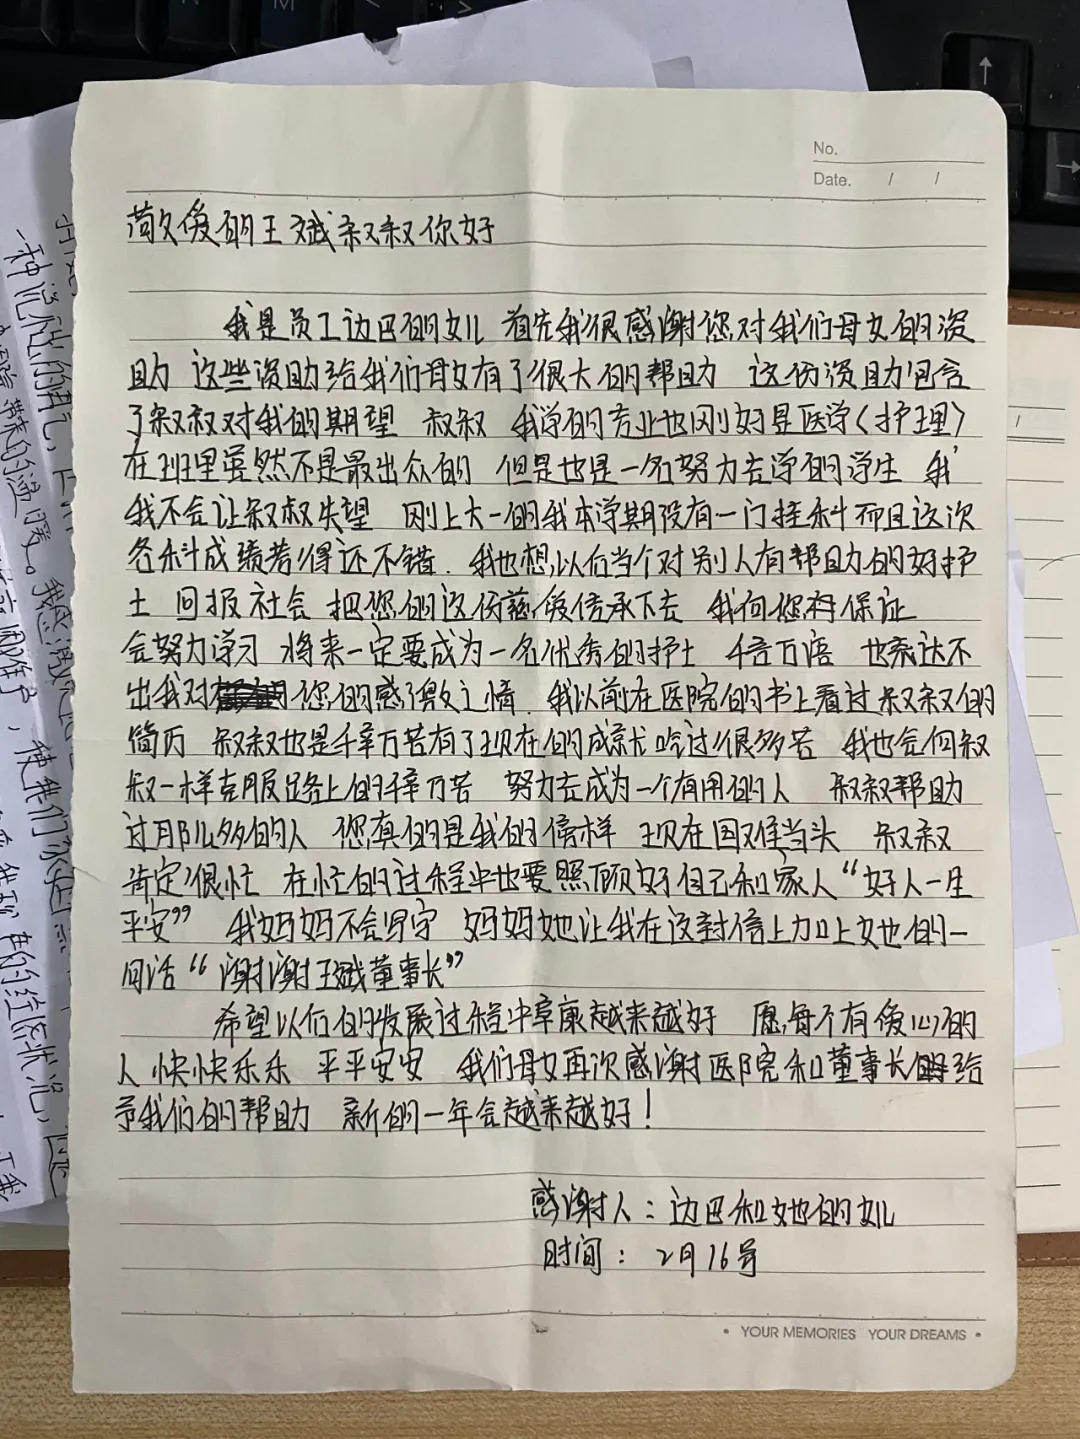 No.
Date. / /
敬爱的王斌叔叔你好
我是员工边巴的女儿 首先我很感谢您对我们母女的资
助 这些资助给我们母女有了很大的帮助 这份资助包含
了叔叔对我的期望 叔叔 我学的专业也刚好是医学(护理)
在班里虽然不是最出众的 但是也是一名努力去学的学生 我
我不会让叔叔失望 刚上大一的我本学期没有一门挂科而且这次
各科成绩考得还不错. 我也想以后当个对别人有帮助的好护
士 回报社会 把您的这份慈爱传承下去 我向您 保证
会努力学习 将来一定要成为一名优秀的护士 千言万语 也表达不
出我对 您的感激之情. 我以前在医院的书上看过叔叔的
简历 叔叔也是千辛万苦有了现在的成就吃过很多苦 我也会向叔
叔一样克服路上的千辛万苦 努力去成为一个有用的人 叔叔帮助
过那么多的人 您真的是我的榜样 现在困难当头 叔叔
肯定很忙 在忙的过程中也要照顾好自己和家人“好人一生
平安” 我妈妈不会写字 妈妈她让我在这封信上加上她的一
句话“谢谢王斌董事长”
希望以后的发展过程中阜康越来越好 愿每个有爱心的
人快快乐乐 平平安安 我们母女再次感谢医院和董事长 给
予我们的帮助 新的一年会越来越好!
感谢人:边巴和她的女儿
时间: 2月16号
• YOUR MEMORIES YOUR DREAMS •